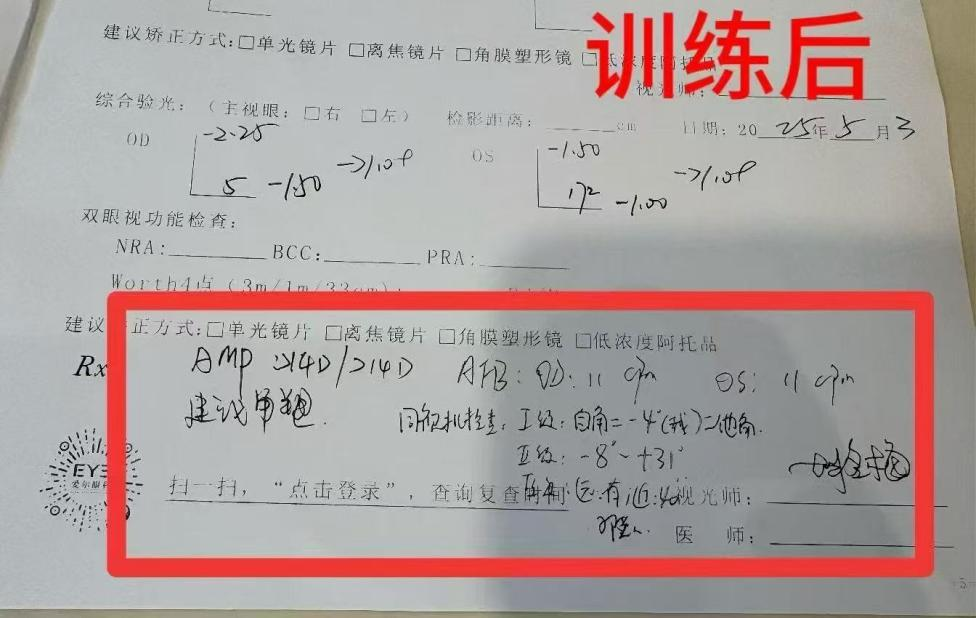 训练后
建议矫正方式:□单光镜片 □离焦镜片 □角膜塑形镜 □低浓度阿托品
视光师:
综合验光: (主视眼: □右 □左) 检影距离: ____cm 日期: 2025年5月3
OD -2.25 5 -1.50 →1.0+ OS -1.50 172 -1.00 →1.0+
双眼视功能检查:
NRA:________ BCC:________ PRA:________
Worth4点 (3m/1m/33cm):
建议矫正方式:□单光镜片 □离焦镜片 □角膜塑形镜 □低浓度阿托品
Rx AMP >14D/>14D AFB: OD: 11 cpm OS: 11 cpm
建议 同视机检查: I级: 自角=-4°(我)=他角.
II级: -8°~+31°
EYE
爱尔眼科
扫一扫,“点击登录”,查询复查时间 远:有 近:40" 视光师:
医 师: